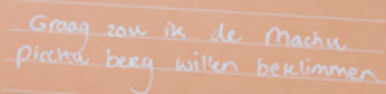 Graag zou ik de Machu
Picchu berg willen beklimmen